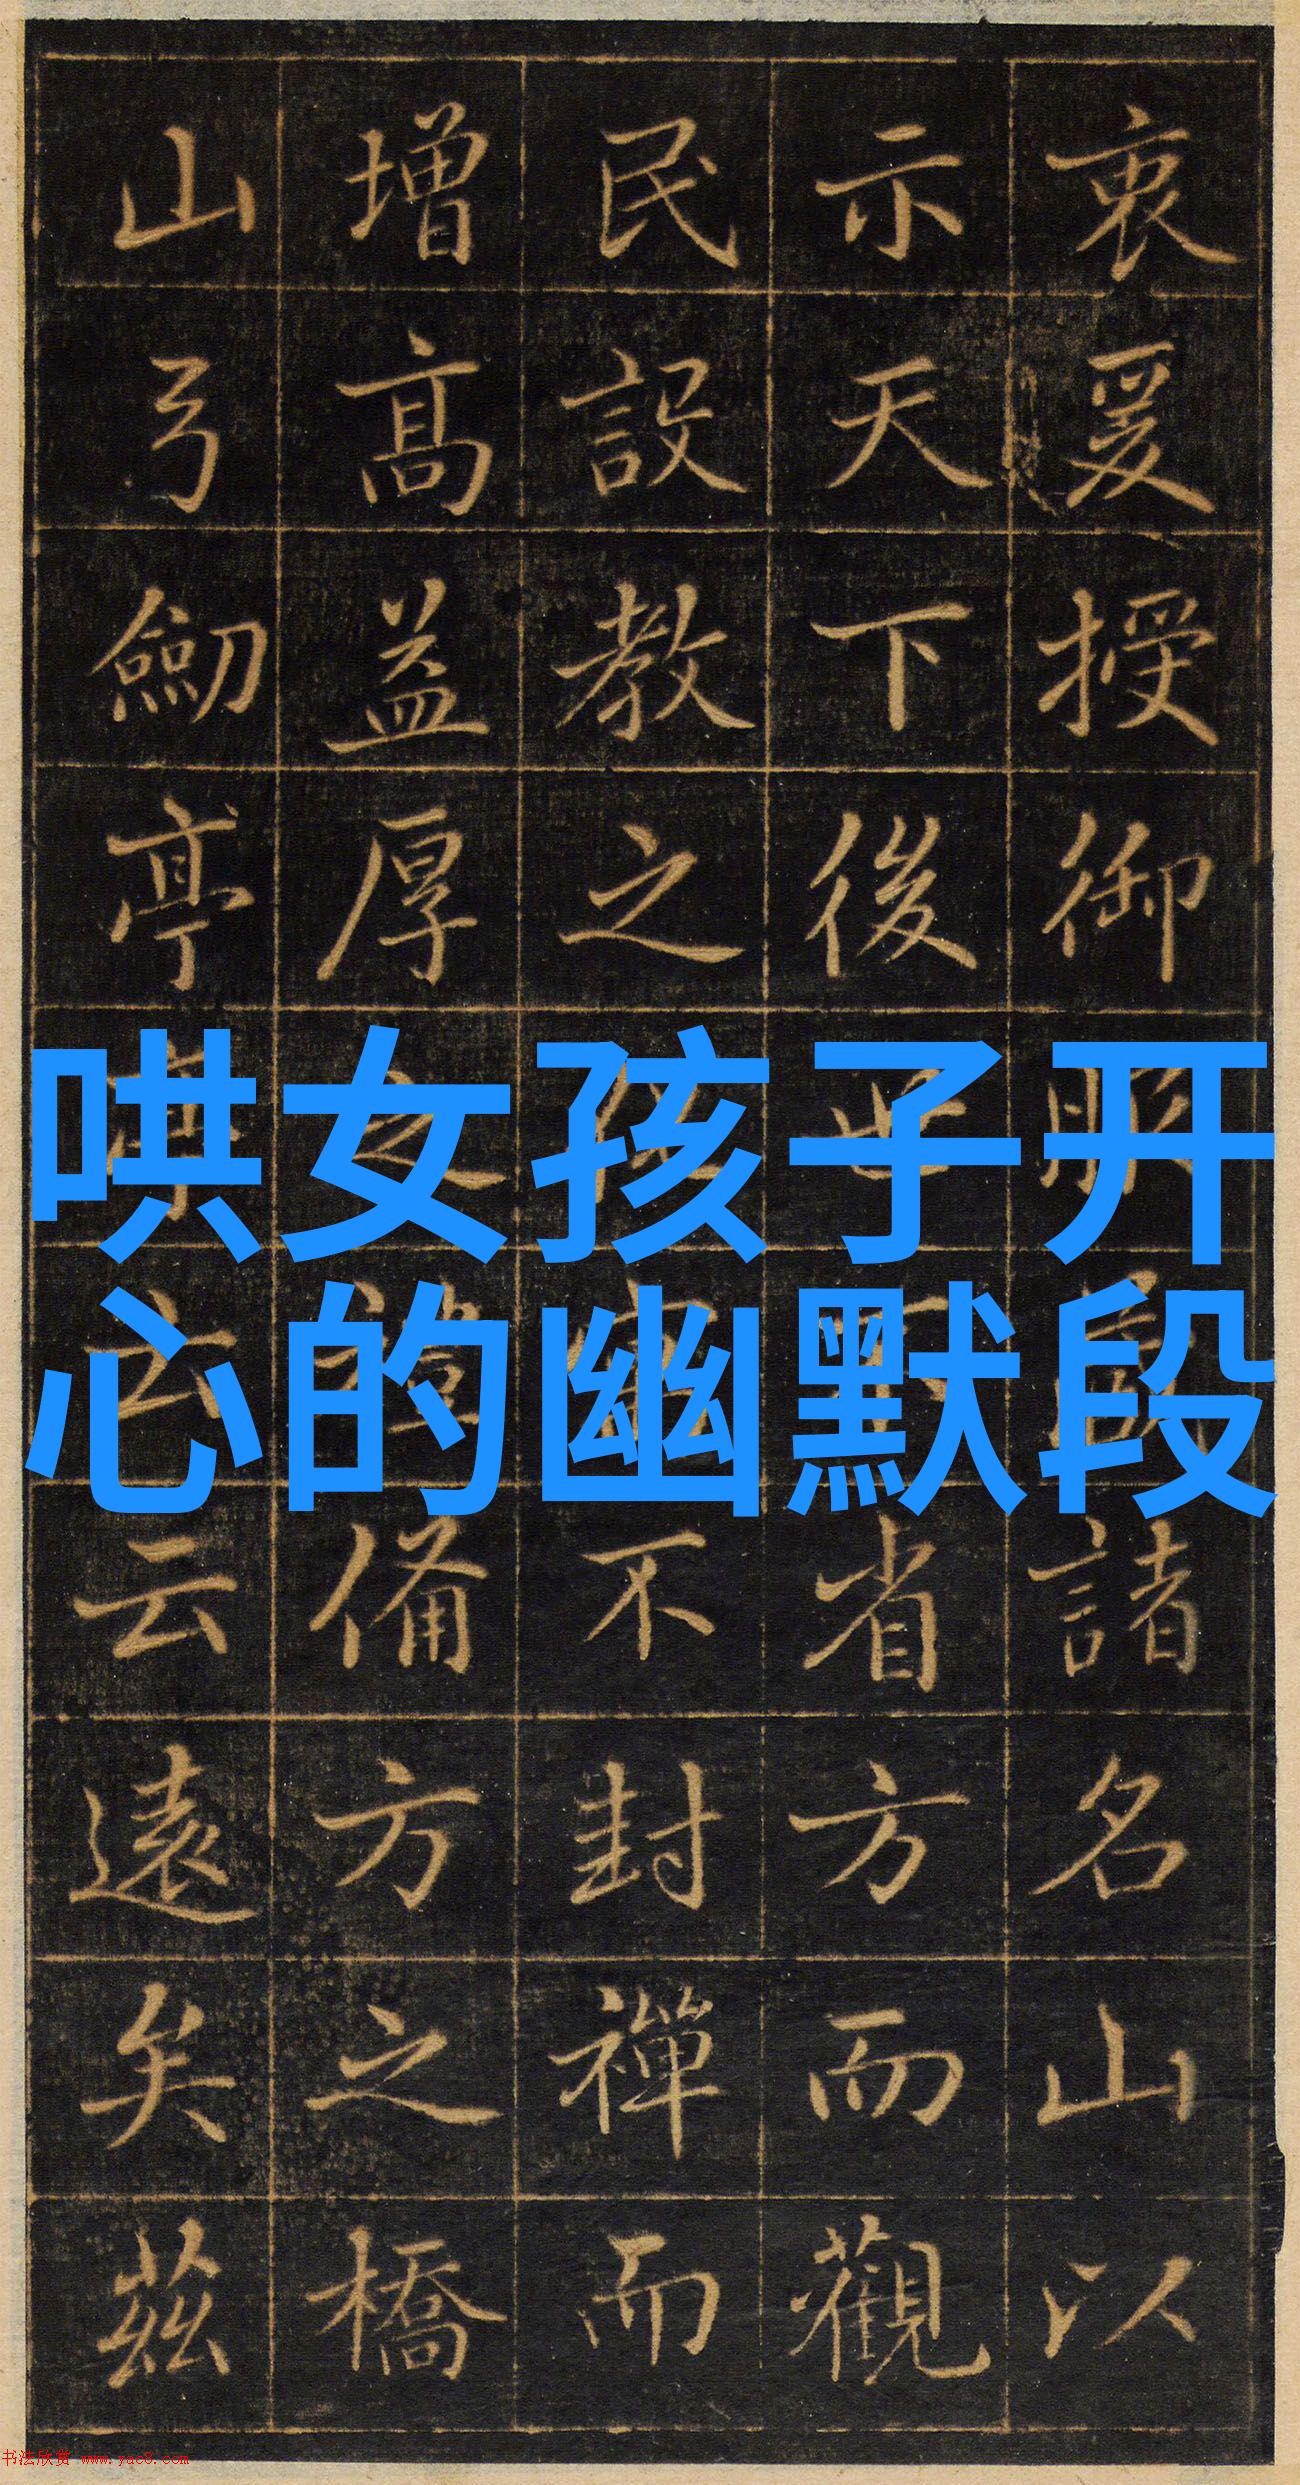 衷爰授御諸名山以
示天下後世省方而觀
民設教之不封禪而
增高益厚之禮備方之橋
山弓劒亭亭云云遠矣茲
哄女孩子开
心的幽默段
书法欣赏 www.yac8.com